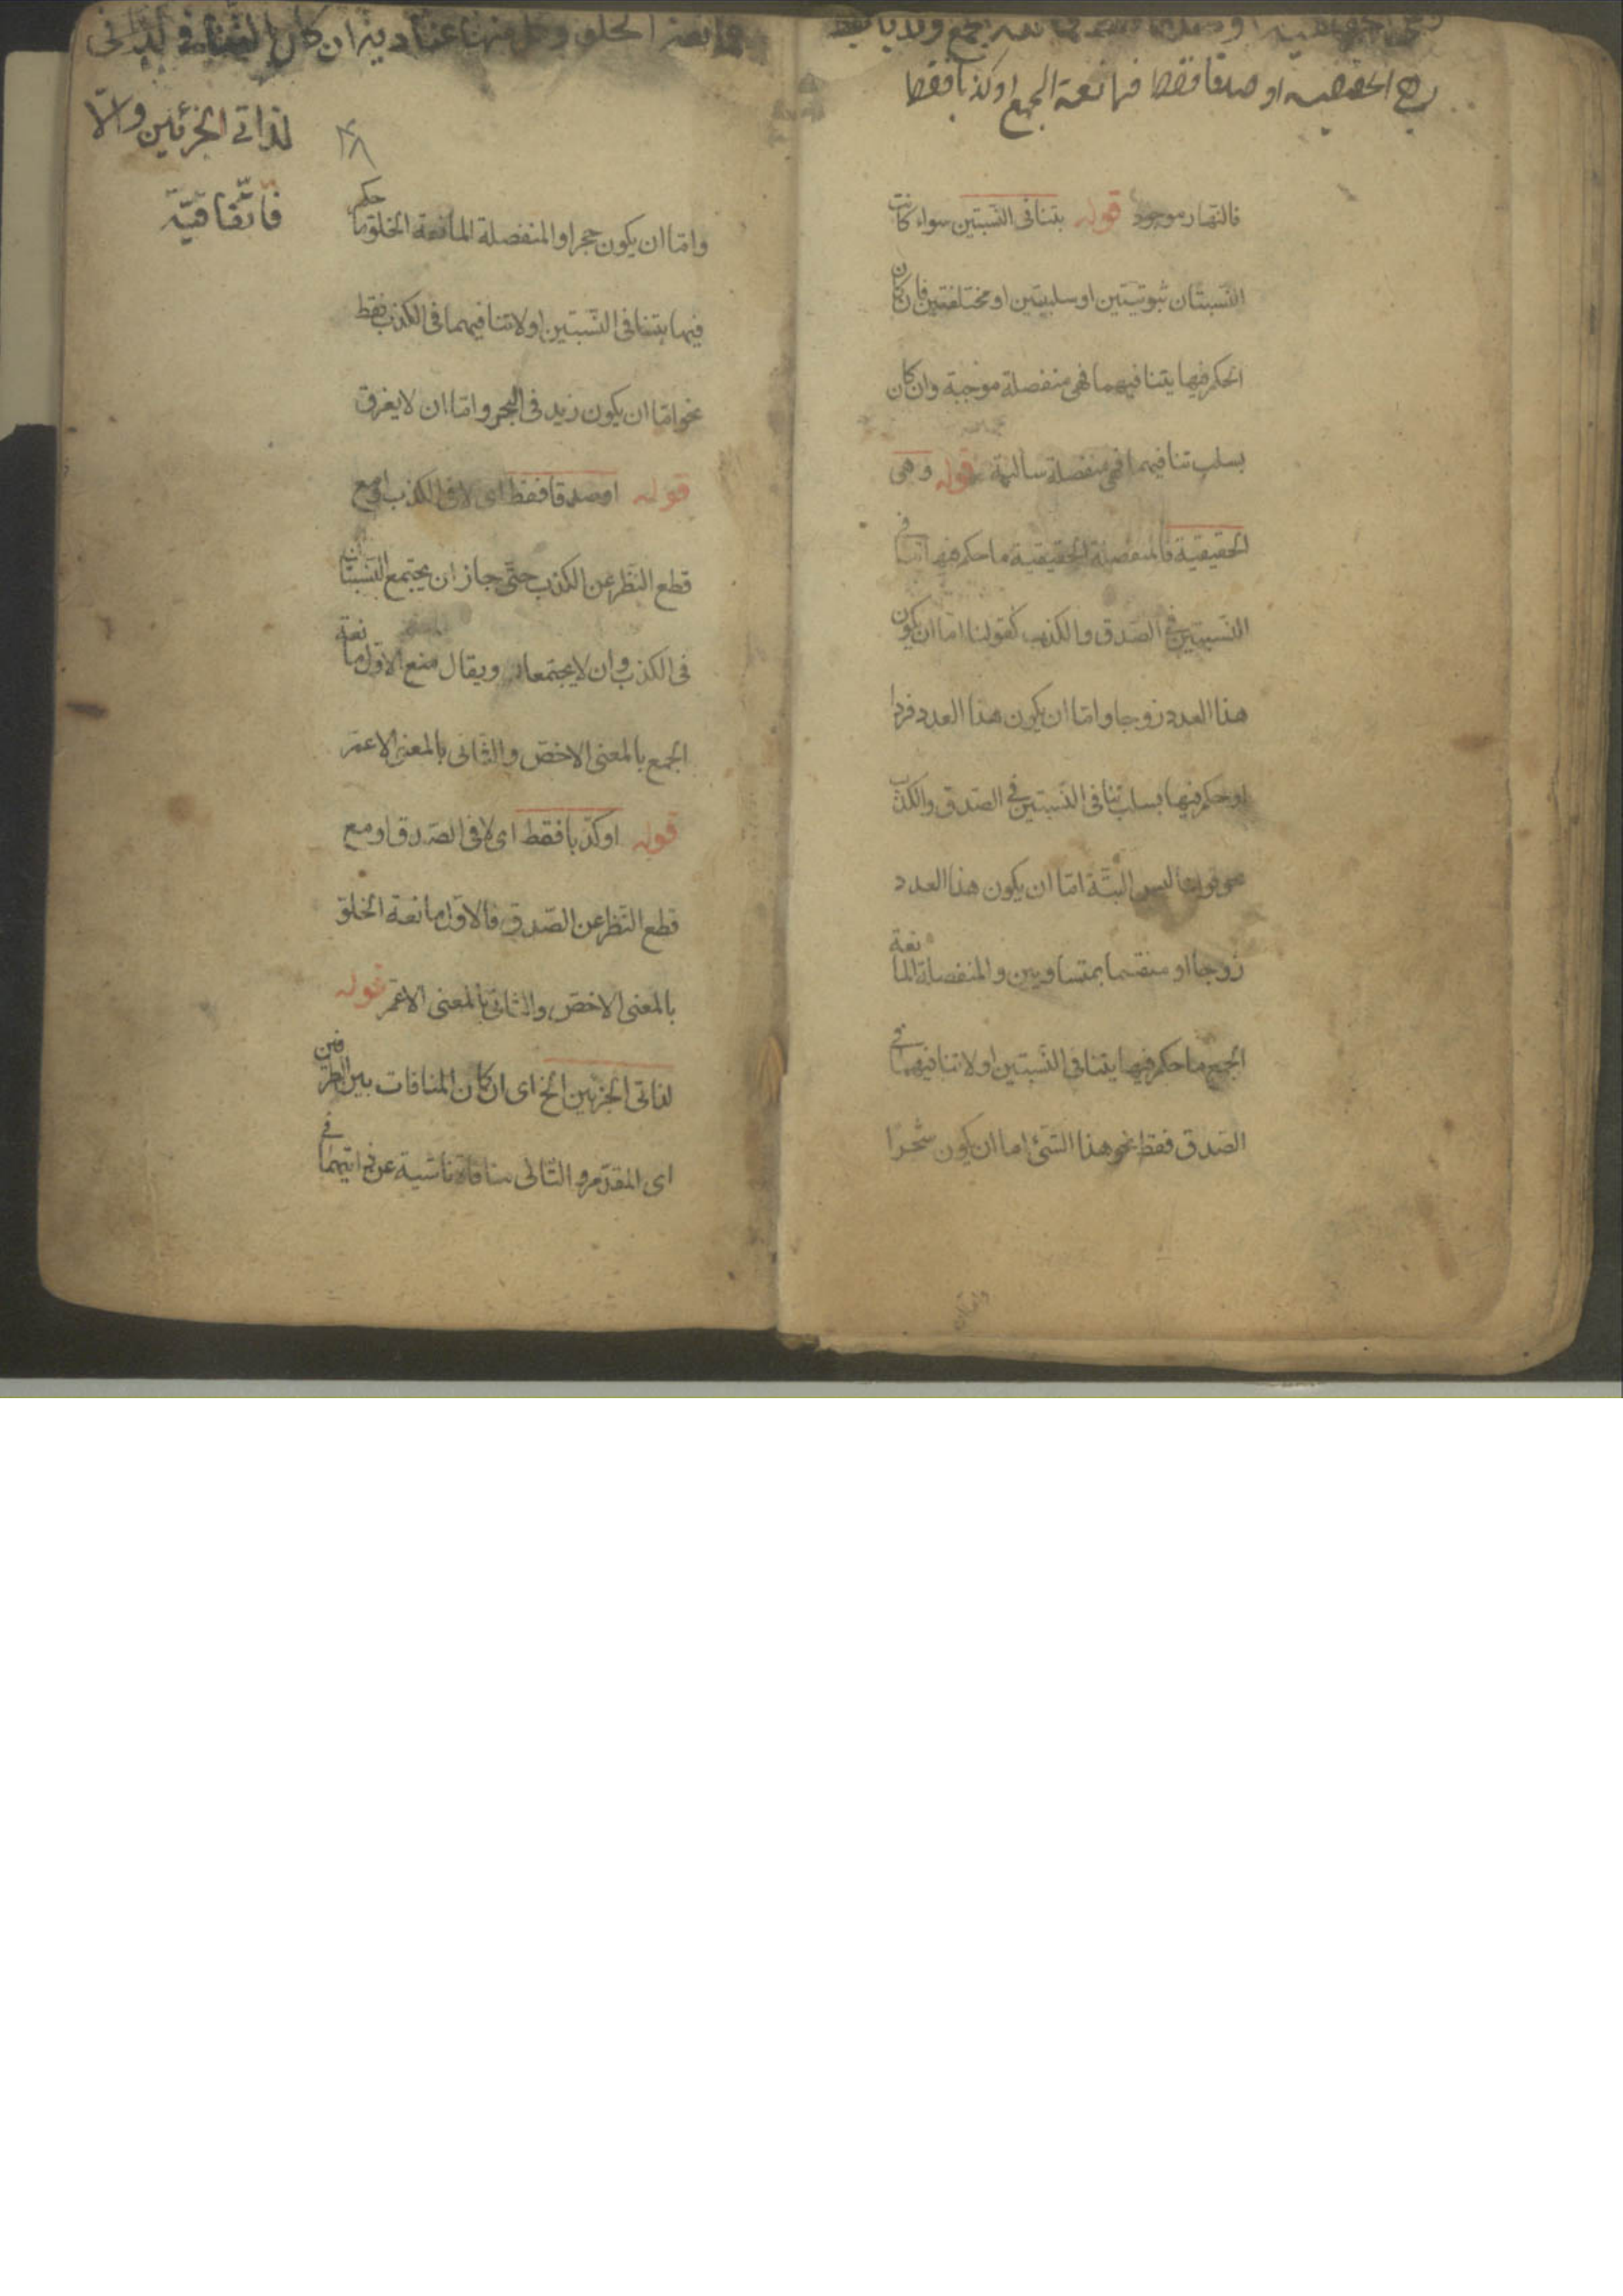 وهى الحقيقية او صدقا فقط فمانعة الجمع او كذبا فقط
فالنهار موجود قوله بتنافى النسبتين سواء كانت
النسبتان ثبوتيتين او سلبيتين او مختلفتين فان كان
الحكم فيها بتنافيهما فهى منفصلة موجبة وان كان
بسلب تنافيهما فهى منفصلة سالبة قوله وهى
الحقيقية فالمنفصلة الحقيقية ما حكم فيها فى
النسبتين فى الصدق والكذب كقولنا اما ان يكون
هذا العدد زوجا واما ان يكون هذا العدد فردا
او حكم فيها بسلب تنافى النسبتين فى الصدق والكذب
ليس البتة اما ان يكون هذا العدد
زوجا او منقسما بمتساويين والمنفصلة المانعة
الجمع ما حكم فيها بتنافى النسبتين او لا تنافيهما فى
الصدق فقط نحو هذا الشئ اما ان يكون شجرا
فمانعة الخلو وكل منها عنادية ان كان التنافى لذاتى
لذاتى الجزئين والّا
فاتّفاقيّة
٤٨
واما ان يكون حجرا والمنفصلة المانعة الخلو ما حكم
فيها بتنافى النسبتين او لا تنافيهما فى الكذب فقط
نحو اما ان يكون زيد فى البحر واما ان لا يغرق
قوله او صدقا فقط اى لا فى الكذب او مع
قطع النظر عن الكذب حتى جاز ان يجتمع النسبتان
فى الكذب وان لا يجتمعا ويقال منع الاول مانعة
الجمع بالمعنى الاخص والثانى بالمعنى الاعم
قوله او كذبا فقط اى لا فى الصدق او مع
قطع النظر عن الصدق فالاول مانعة الخلو
بالمعنى الاخص والثانى بالمعنى الاعم قوله
لذاتى الجزئين الخ اى ان كان المنافات بين الطرفين
اى المقدم والتالى منافاة ناشية عن ذاتيهما فى